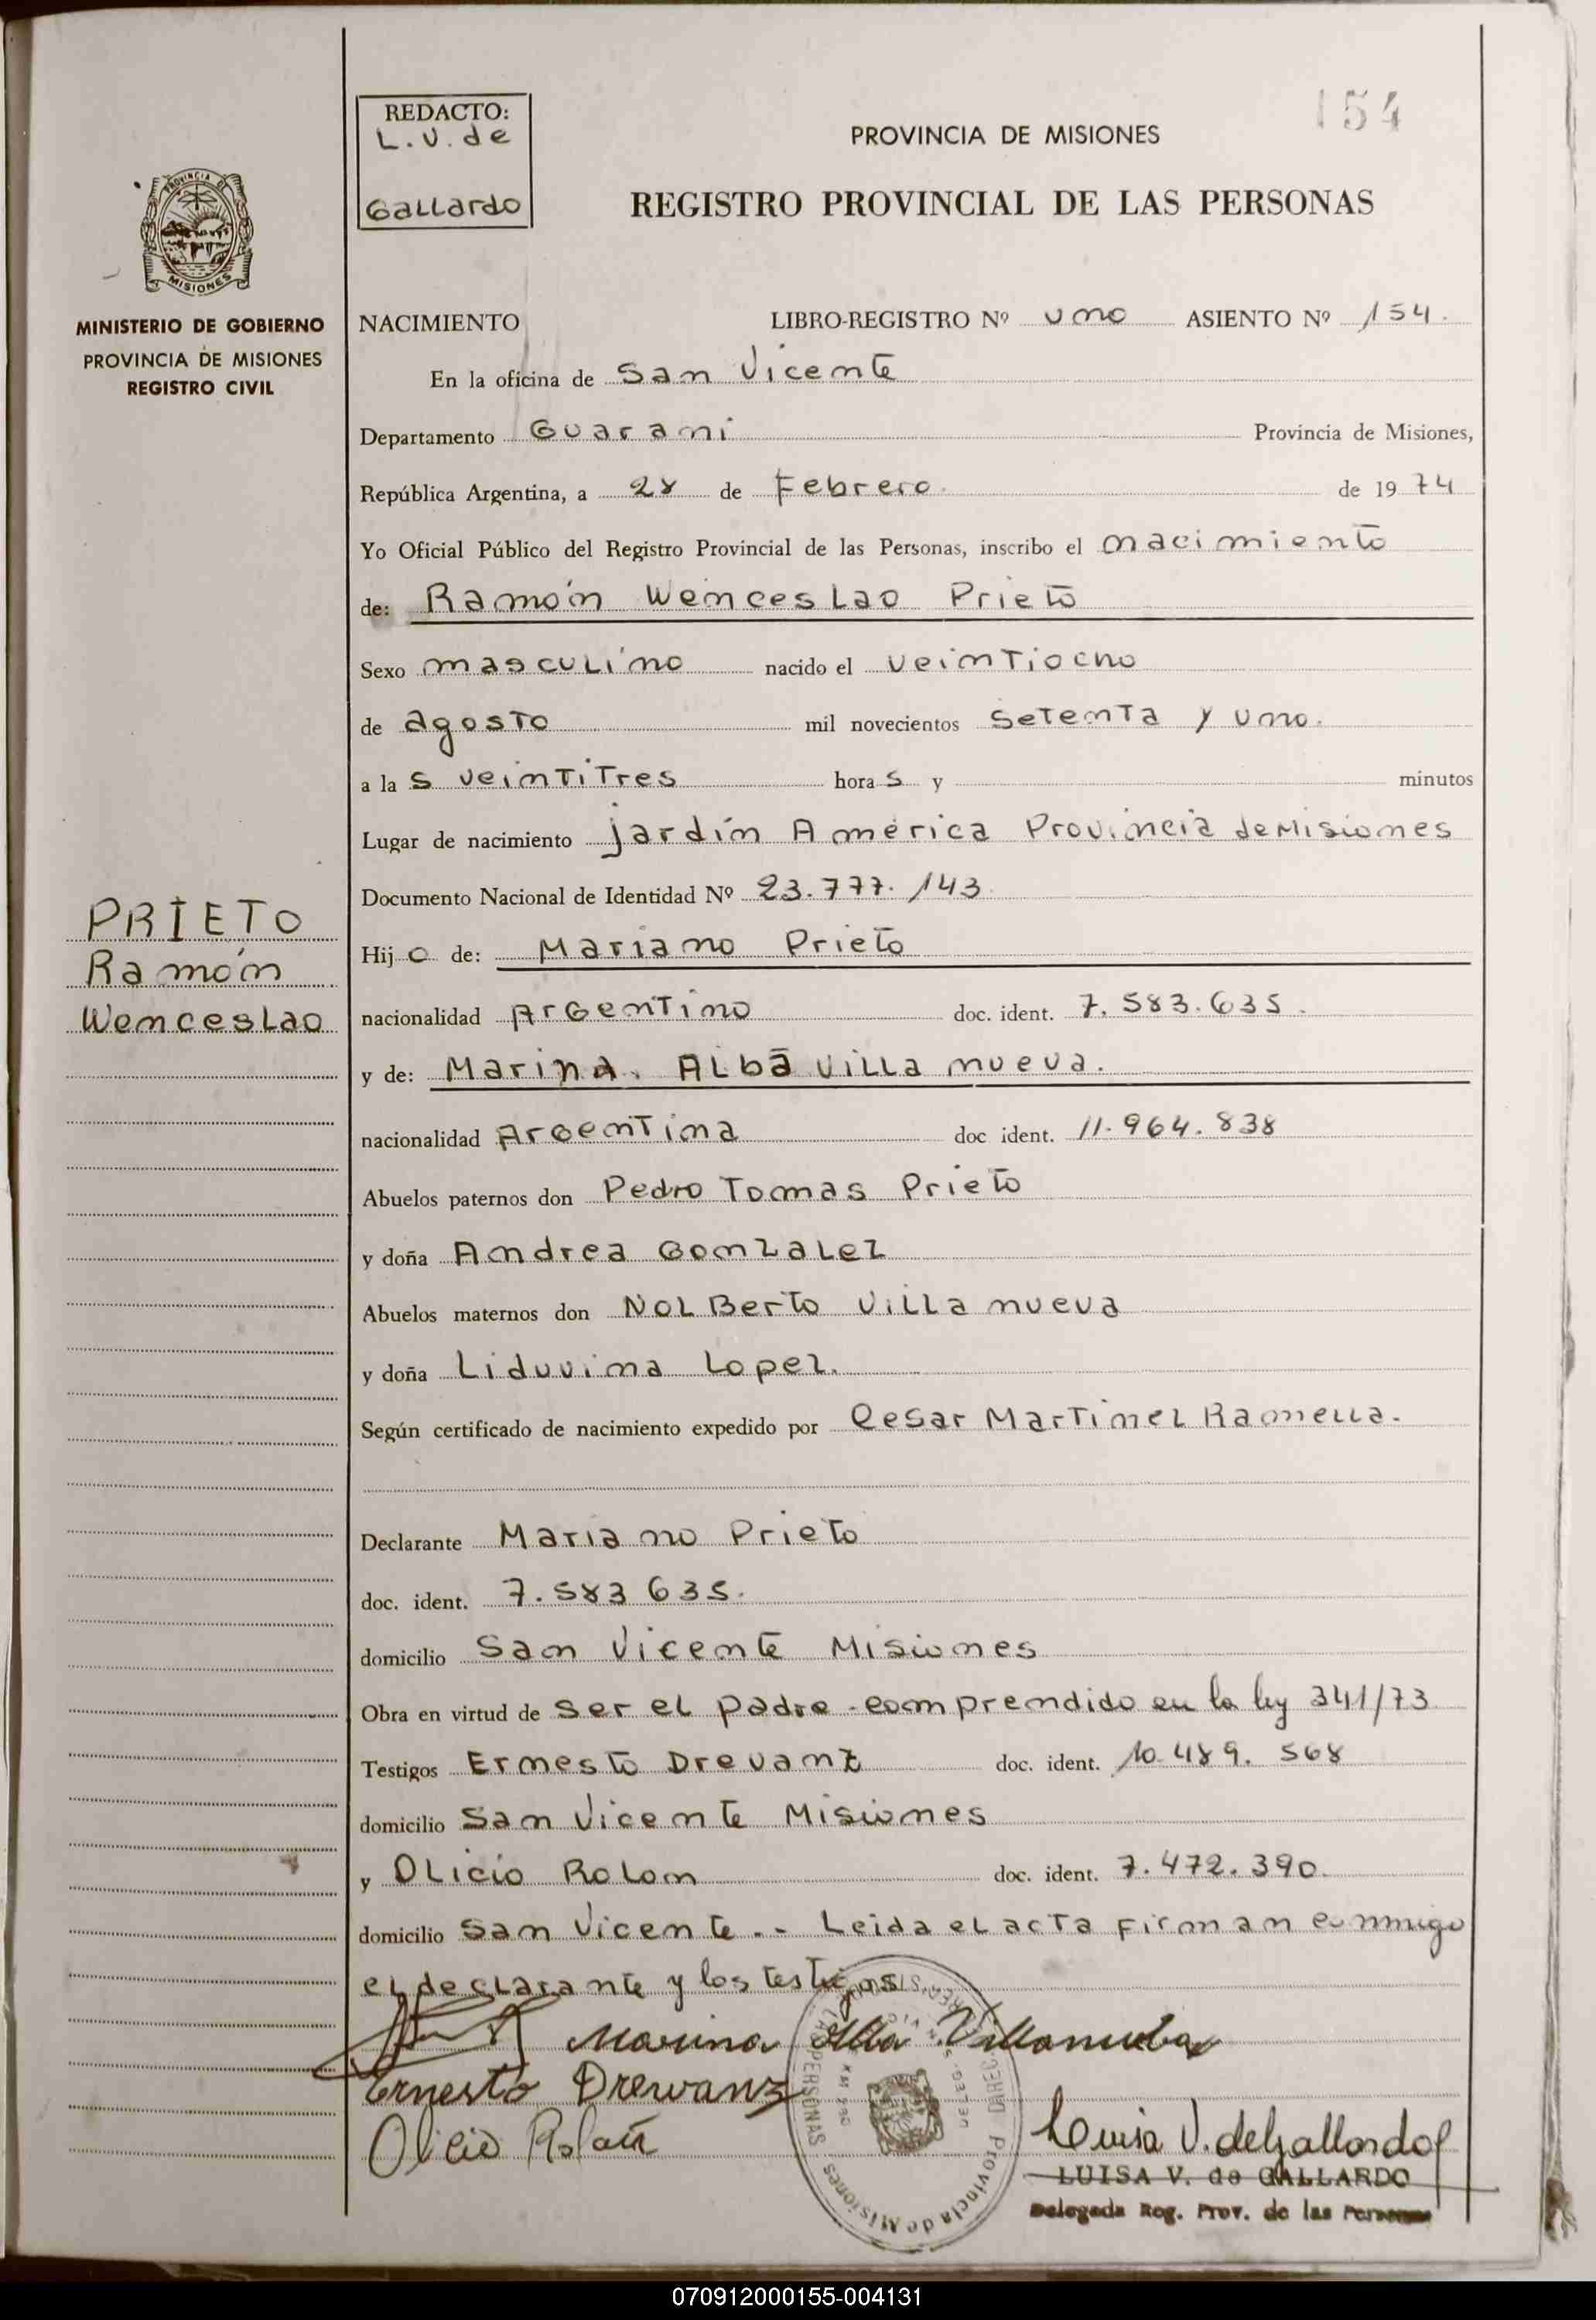 154
REDACTO:
L.V. de
Gallardo
PROVINCIA DE MISIONES
REGISTRO PROVINCIAL DE LAS PERSONAS
PROVINCIA DE
MISIONES
MINISTERIO DE GOBIERNO
PROVINCIA DE MISIONES
REGISTRO CIVIL
NACIMIENTO LIBRO-REGISTRO Nº uno ASIENTO Nº 154.
En la oficina de San Vicente
Departamento Guarani Provincia de Misiones,
República Argentina, a 28 de Febrero. de 1974
Yo Oficial Público del Registro Provincial de las Personas, inscribo el nacimiento
de: Ramón Wenceslao Prieto
Sexo masculino nacido el veintiocho
de agosto mil novecientos setenta y uno.
a las veintitres horas y minutos
Lugar de nacimiento Jardín América Provincia de Misiones
Documento Nacional de Identidad Nº 23.777.143
PRIETO
Ramón
Wenceslao
Hijo de: Mariano Prieto
nacionalidad Argentino doc. ident. 7.583.635.
y de: Marina. Alba Villanueva.
nacionalidad Argentina doc ident. 11.964.838
Abuelos paternos don Pedro Tomas Prieto
y doña Andrea Gonzalez
Abuelos maternos don Nolberto Villanueva
y doña Liduvina Lopez.
Según certificado de nacimiento expedido por Cesar Martinez Ramella.
Declarante Mariano Prieto
doc. ident. 7.583635.
domicilio San Vicente Misiones
Obra en virtud de ser el padre - comprendido en la ley 341/73
Testigos Ernesto Drevanz doc. ident. 10.489.568
domicilio San Vicente Misiones
y Olicio Rolon doc. ident. 7.472.390.
domicilio San Vicente.- Leida el acta firman conmigo
el declarante y los testigos
Marina Alba Villanueba
Ernesto Drewanz
Olicio Rolon
Luisa V. de Gallardo
LUISA V. de GALLARDO
Delegada Reg. Prov. de las Personas
Provincia de Misiones
PERSONAS
070912000155-004131